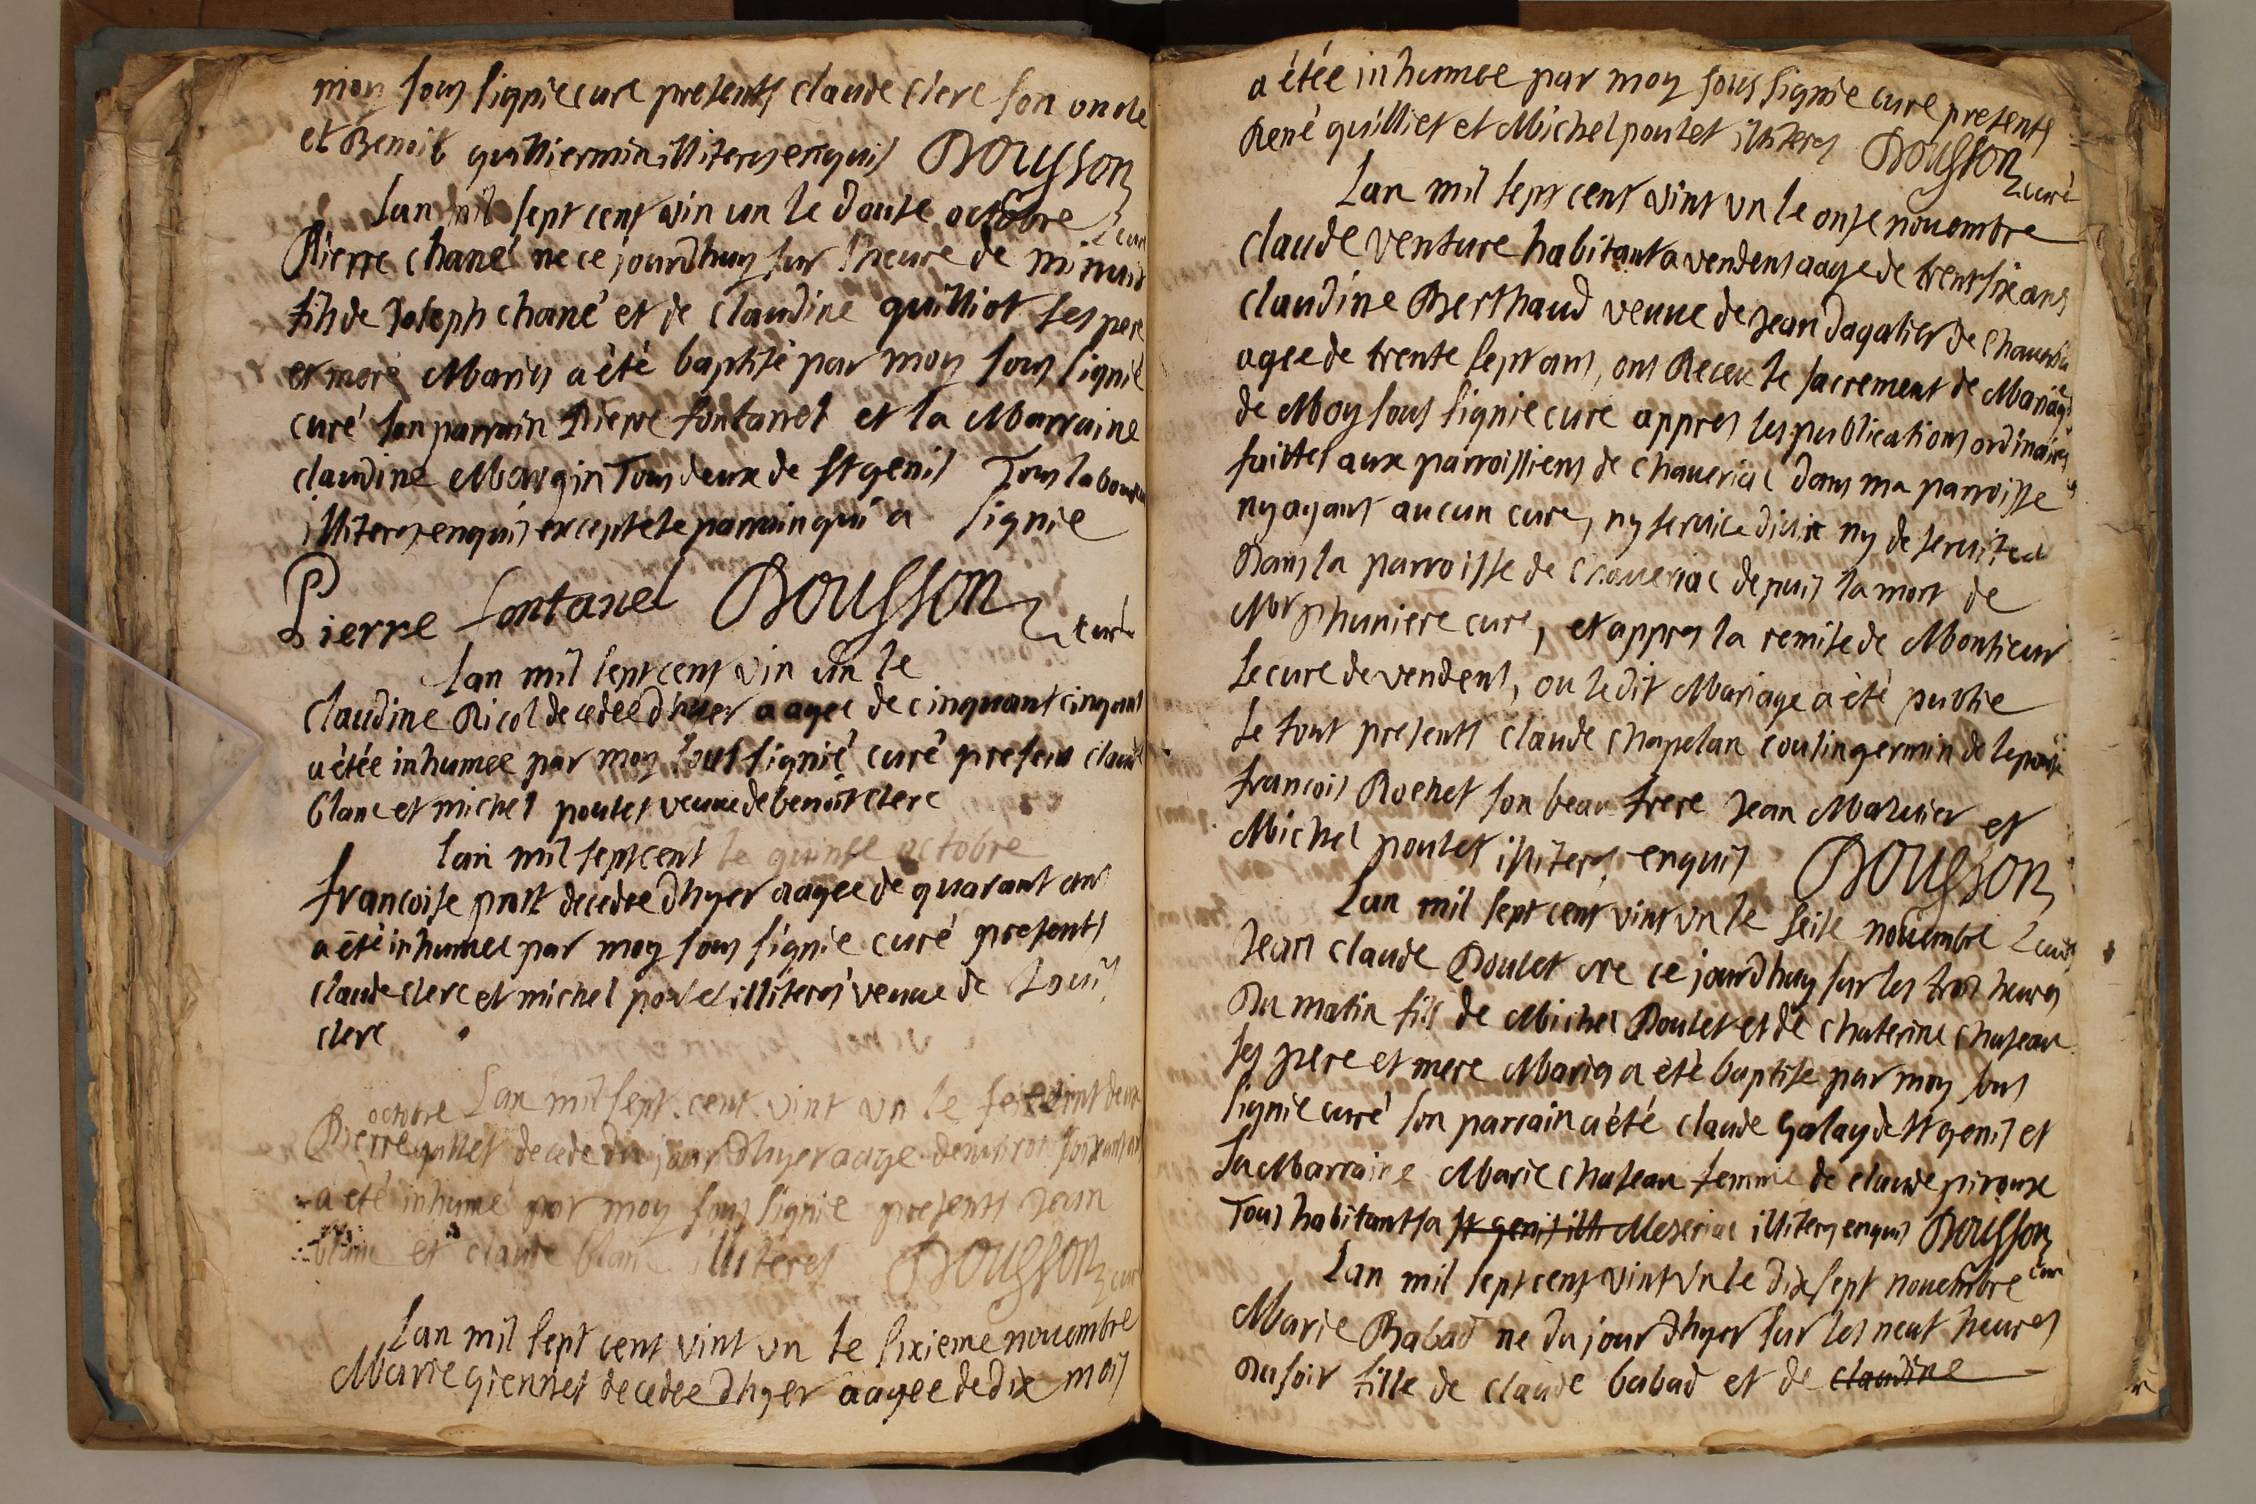 moy sous signie cure presents claude clerc son oncle
et Benoit guilliermin illiteres enquis Dousson
curé
Lan mil sept cent vin un le douse octobre
Pierre chanel ne ce jourdhuy sur lheure de minuit
fils de Joseph chané et de claudine guilliot ses pere
et mere Maries a été baptisé par moy sous signié
curé son parrain Pierre fontanel et la Marraine
claudine Mangin Tous deux de st genis Tous laboureurs
illiteres enquis excepte le parrain qui a signie
Pierre fontanel Dousson curé
Lan mil sept cent vin un le
claudine Ricol decedee dhyer aagee de cinquant cinq ans
a étée inhumee par moy sous signié curé presens claude
blanc et michel poulet veuve de benoit clerc
lan mil sept cent le quinse octobre
francoise prost decedee dhyer aagee de quarant ans
a été inhumee par moy sous signie curé presents
claude clerc et michel poulet illiteres veuve de Louis
clerc
Lan mil sept cent vint un le vint deux
octobre
Pierre guillet decede du jour dhyer aage denviron soixant ans
a été inhumé par moy sous signie presents Jean
blanc et claude blanc illiteres Dousson cure
Lan mil sept cent vint un le sixieme novembre
Marie giennet decedee dhyer aagee de dix mois
a étée inhumee par moy sous signie cure presents
René guilliet et Michel poulet illiteres Dousson
curé
Lan mil sept cent vint un le onse novembre
claude venture habitant a vendens aage de trent six ans
claudine Berthaud veuve de Jean dagalier de
agee de trente sept ans, ont Receu le sacrement de Mariage
de Moy sous signie cure appres les publications ordinaires
faittes aux parroissiens de chaveriac dans ma parroisse
ny ayant aucun cure, ny service divin ny de
Dans la parroisse de chaveriac depuis la mort de
Mor phuniere cure, et appres la remise de Monsieur
Le cure de vendens, ou ledit Mariage a été publie
Le tout presents claude chapelan cousin germin de lepouse
francois Rochet son beau frere Jean Marvier et
Michel poulet illiteres, enquis Dousson
curé
Lan mil sept cent vint un le seise novembre
Jean claude Poulet ne ce jourdhuy sur les trois heures
Du matin fils de Michel Poulet et de chaterine chateau
ses pere et mere Maries a été baptise par moy sous
signie curé son parrain a été claude Galay de st genis et
La Marraine Marie chateau femme de claude piroux
Tous habitants a st genis illi Meseriac illiteres enquis Dousson
cure
Lan mil sept cent vint un le dix sept novembre
Marie Babad ne du jour dhyer sur les neuf heures
Du soir fille de claude babad et de claudine